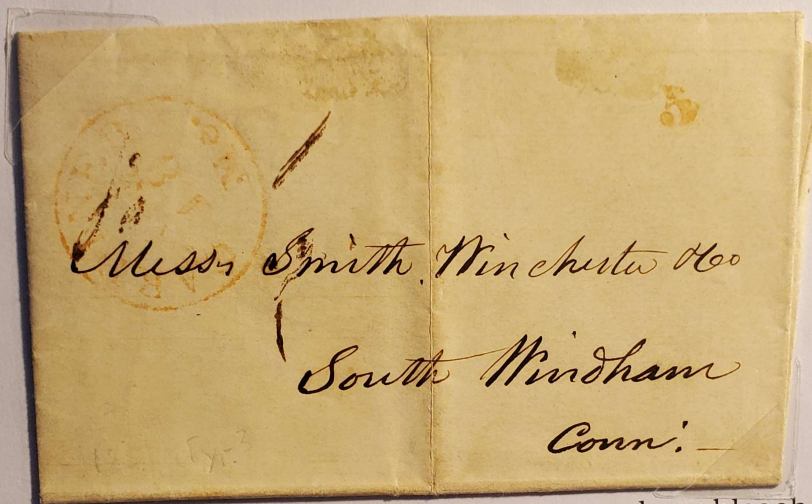 5
Messrs Smith, Winchester & Co
South Windham
Conn.